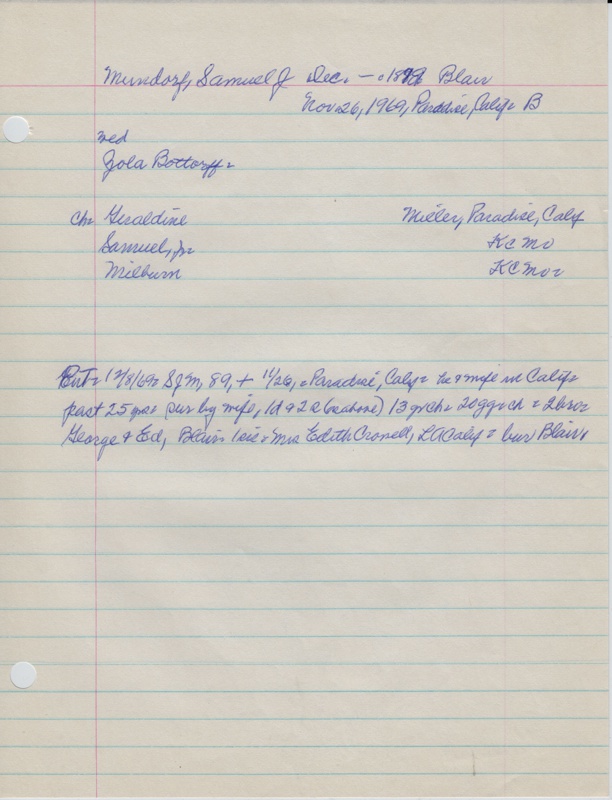 Mundorf, Samuel J Dec. – c1879 Blair
Nov. 26, 1969, Paradise, Calif. B
med
Zola Bottorff.
Ch. Geraldine Miller, Paradise, Calif
Samuel, Jr. KC Mo
Milburn KC Mo.
12/8/69. SJM, 89, + 11/26, Paradise, Calif. he & wife in Calif.
past 25 yrs. sur by wife, 1d & 2s (as above) 13 grch. 20 ggrch. 2bro.
George & Ed, Blair. 1sis. Mrs Edith Crowell, LA Calif. bur Blair.